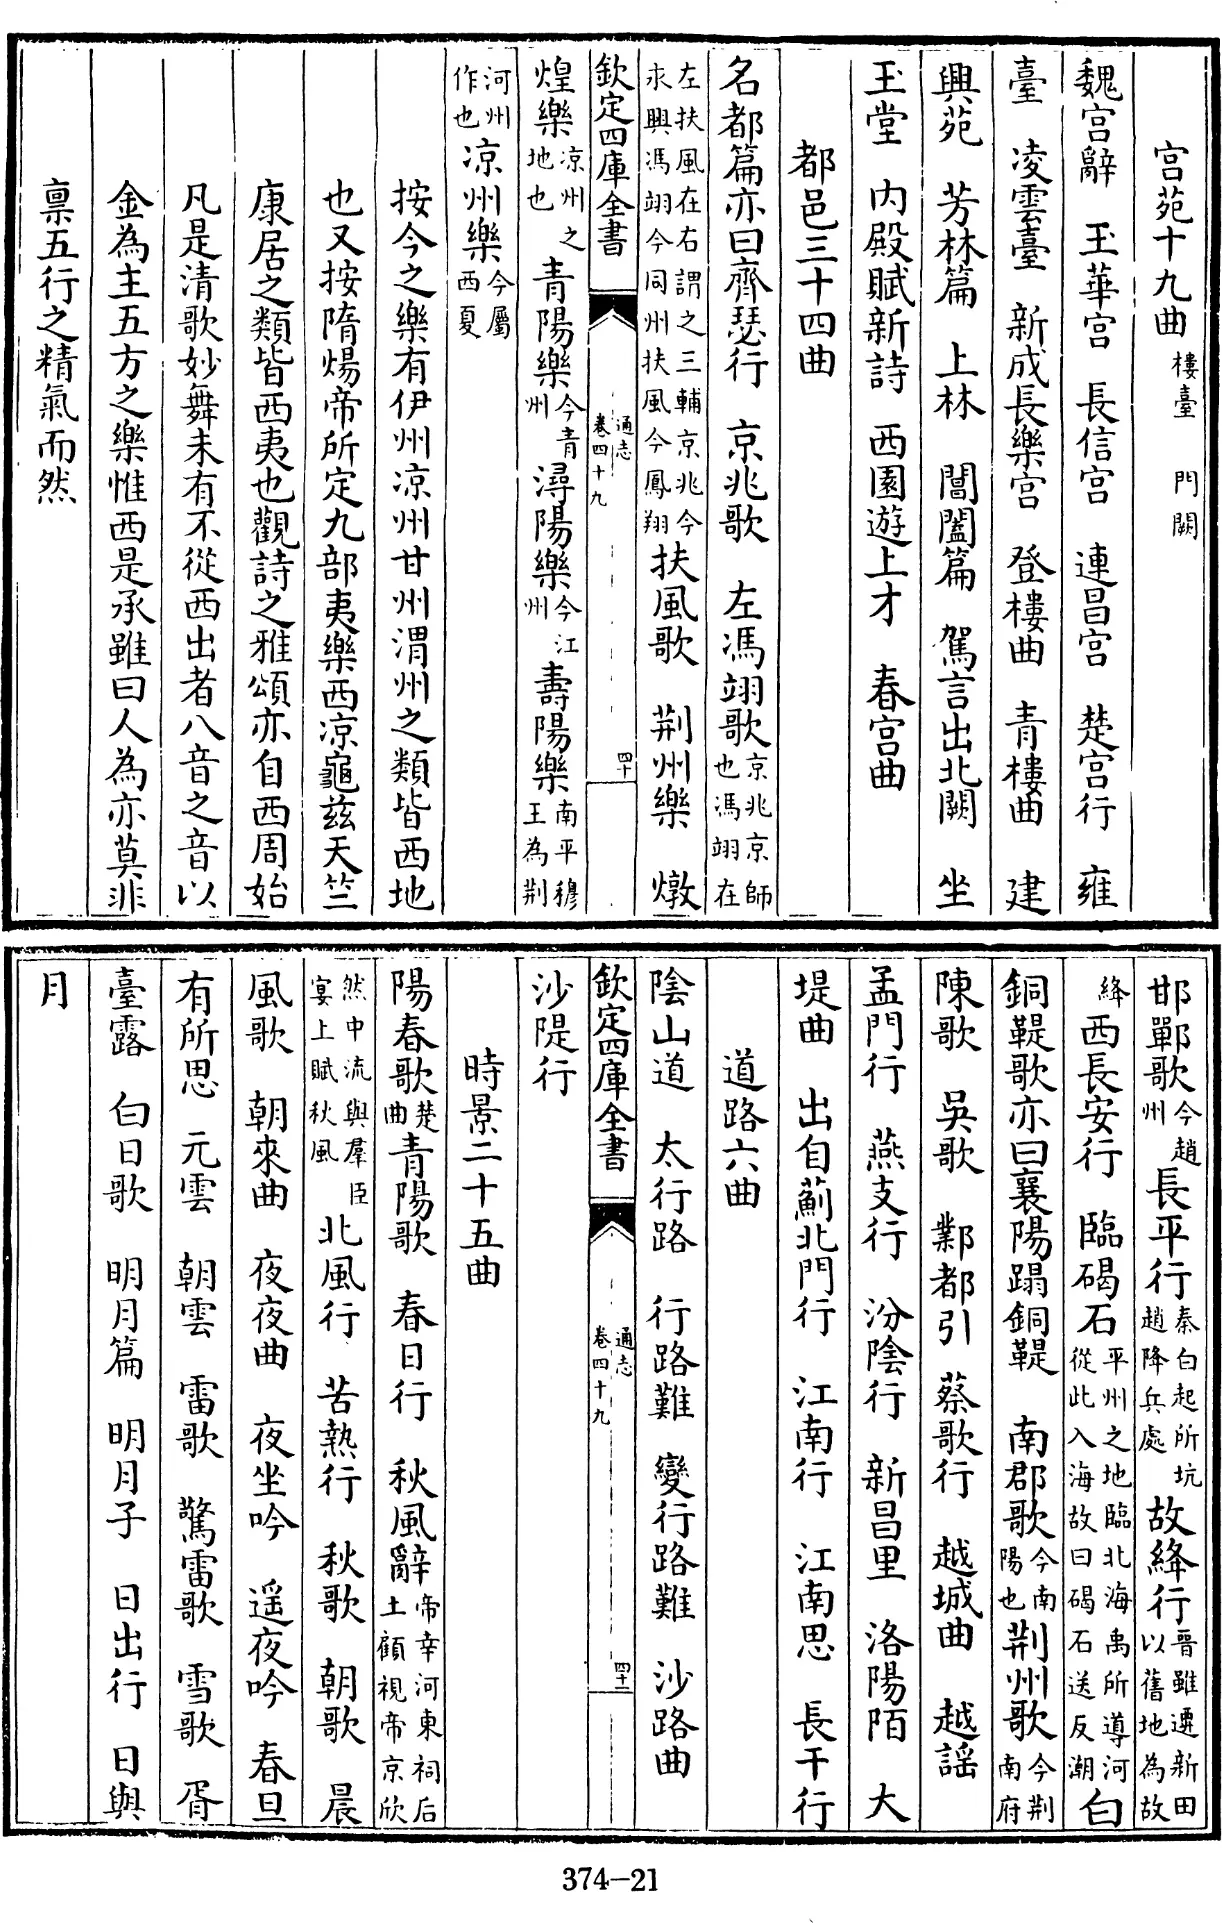 宮苑十九曲 樓臺 門闕
魏宮辭 玉華宮 長信宮 連昌宮 楚宮行 雍
臺 凌雲臺 新成長樂宮 登樓曲 青樓曲 建
興苑 芳林篇 上林 閶闔篇 駕言出北闕 坐
玉堂 内殿賦新詩 西園遊上才 春宮曲
都邑三十四曲
名都篇亦曰齊瑟行 京兆歌 左馮翊歌京兆京師也馮翊在
左扶風在右謂之三輔京兆今永興馮翊今同州扶風今鳳翔扶風歌 荆州樂 燉
欽定四庫全書 通志 卷四十九 四十
煌樂凉州之地也 青陽樂今青州 潯陽樂今江州 壽陽樂南平穆王為荆
河州作也凉州樂今屬西夏
按今之樂有伊州凉州甘州渭州之類皆西地
也又按隋煬帝所定九部夷樂西凉龜茲天竺
康居之類皆西夷也觀詩之雅頌亦自西周始
凡是清歌妙舞未有不從西出者八音之音以
金為主五方之樂惟西是承雖曰人為亦莫非
禀五行之精氣而然
邯鄲歌今趙州 長平行秦白起所坑趙降兵處 故絳行晉雖遷新田以舊地為故
絳 西長安行 臨碣石平州之地臨北海禹所導河從此入海故曰碣石送反潮 白
銅鞮歌亦曰襄陽蹋銅鞮 南郡歌今南陽也荆州歌今荆南府
陳歌 吳歌 鄴都引 蔡歌行 越城曲 越謡
孟門行 燕支行 汾陰行 新昌里 洛陽陌 大
堤曲 出自薊北門行 江南行 江南思 長干行
道路六曲
陰山道 太行路 行路難 變行路難 沙路曲
欽定四庫全書 通志 卷四十九 四十一
沙隄行
時景二十五曲
陽春歌楚曲青陽歌 春日行 秋風辭帝幸河東祠后土顧視帝京欣
然中流與羣臣宴上賦秋風 北風行 苦熱行 秋歌 朝歌 晨
風歌 朝來曲 夜夜曲 夜坐吟 遥夜吟 春旦
有所思 元雲 朝雲 雷歌 驚雷歌 雪歌 胥
臺露 白日歌 明月篇 明月子 日出行 日與
月
374-21